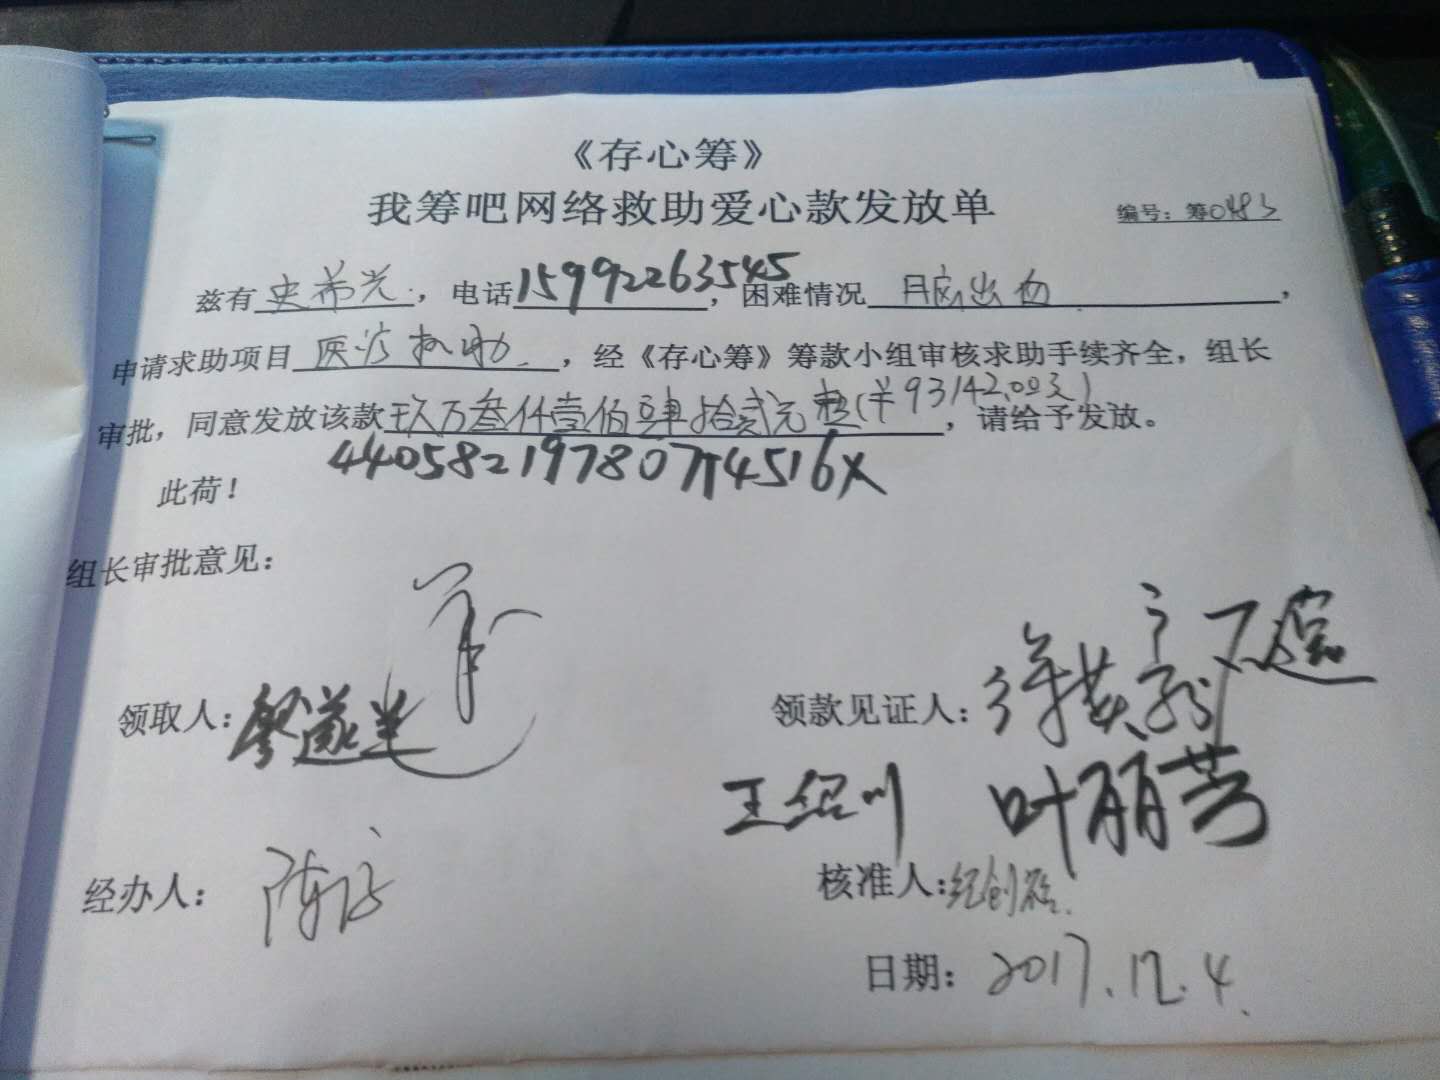 《存心筹》
我筹吧网络救助爱心款发放单
编号：筹0483
兹有史希光，电话15992263545，困难情况脑出血，
申请求助项目医疗救助，经《存心筹》筹款小组审核求助手续齐全，组长
审批，同意发放该款玖万叁仟壹佰肆拾贰元整(￥93142.00元)，请给予发放。
此荷！
组长审批意见：
领取人：
领款见证人：
王绍川 叶丽芳
经办人：
核准人：
日期：2017.12.4